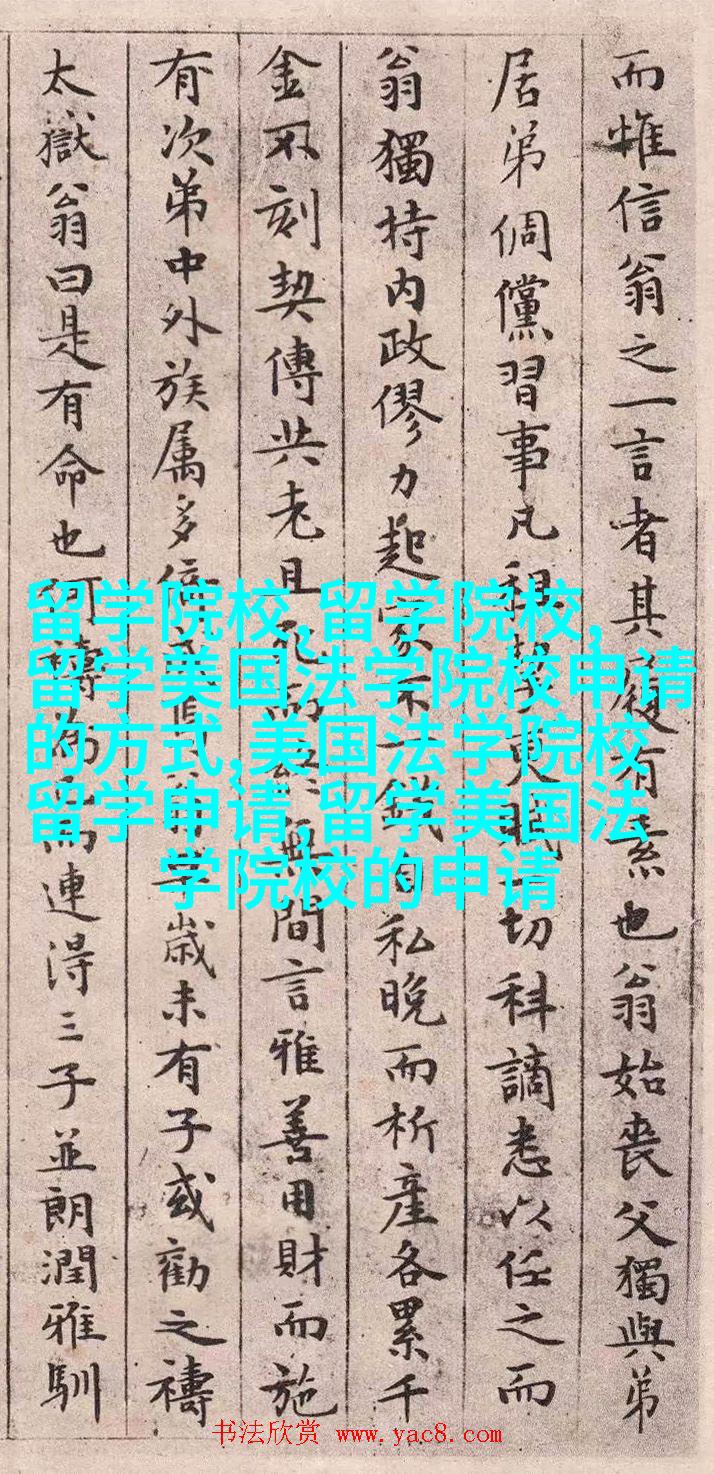 而惟信翁之一言者其履有素也翁始喪父獨與弟
居弟倜儻習事凡租契更賦一切科謫悉以任之而
翁獨持内政僇力起家不一錢自私晚而析產各累千
金不刻契傳共老且死而絕無間言雅善用財而施
有次弟中外族属多倚
歲未有子或勸之禱
太嶽翁曰是有命也何禱為已而連得三子並朗潤雅馴
留学院校,留学院校,
留学美国法学院校申请
的方式,美国法学院校
留学申请,留学美国法
学院校的申请
书法欣赏 www.yac8.com